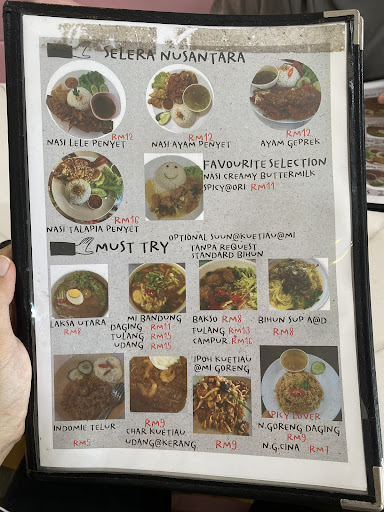 SELERA NUSANTARA
RM12
NASI LELE PENYET
RM12
NASI AYAM PENYET
RM12
AYAM GEPREK
RM16
NASI TALAPIA PENYET
FAVOURITE SELECTION
NASI CREAMY BUTTERMILK
SPICY@ORI RM11
MUST TRY
OPTIONAL SUUN@KUETIAU@MI
TANPA REQUEST
STANDARD BIHUN
LAKSA UTARA
RM8
MI BANDUNG
DAGING RM11
TULANG RM15
UDANG RM15
BAKSO RM8
TULANG RM13
CAMPUR RM16
BIHUN SUP A@D
RM8
IPOH KUETIAU
@MI GORENG
INDOMIE TELUR
RM5
RM9
CHAR KUETIAU
UDANG@KERANG
RM9
SPICY LOVER
N.GORENG DAGING
RM9
N.G.CINA RM7